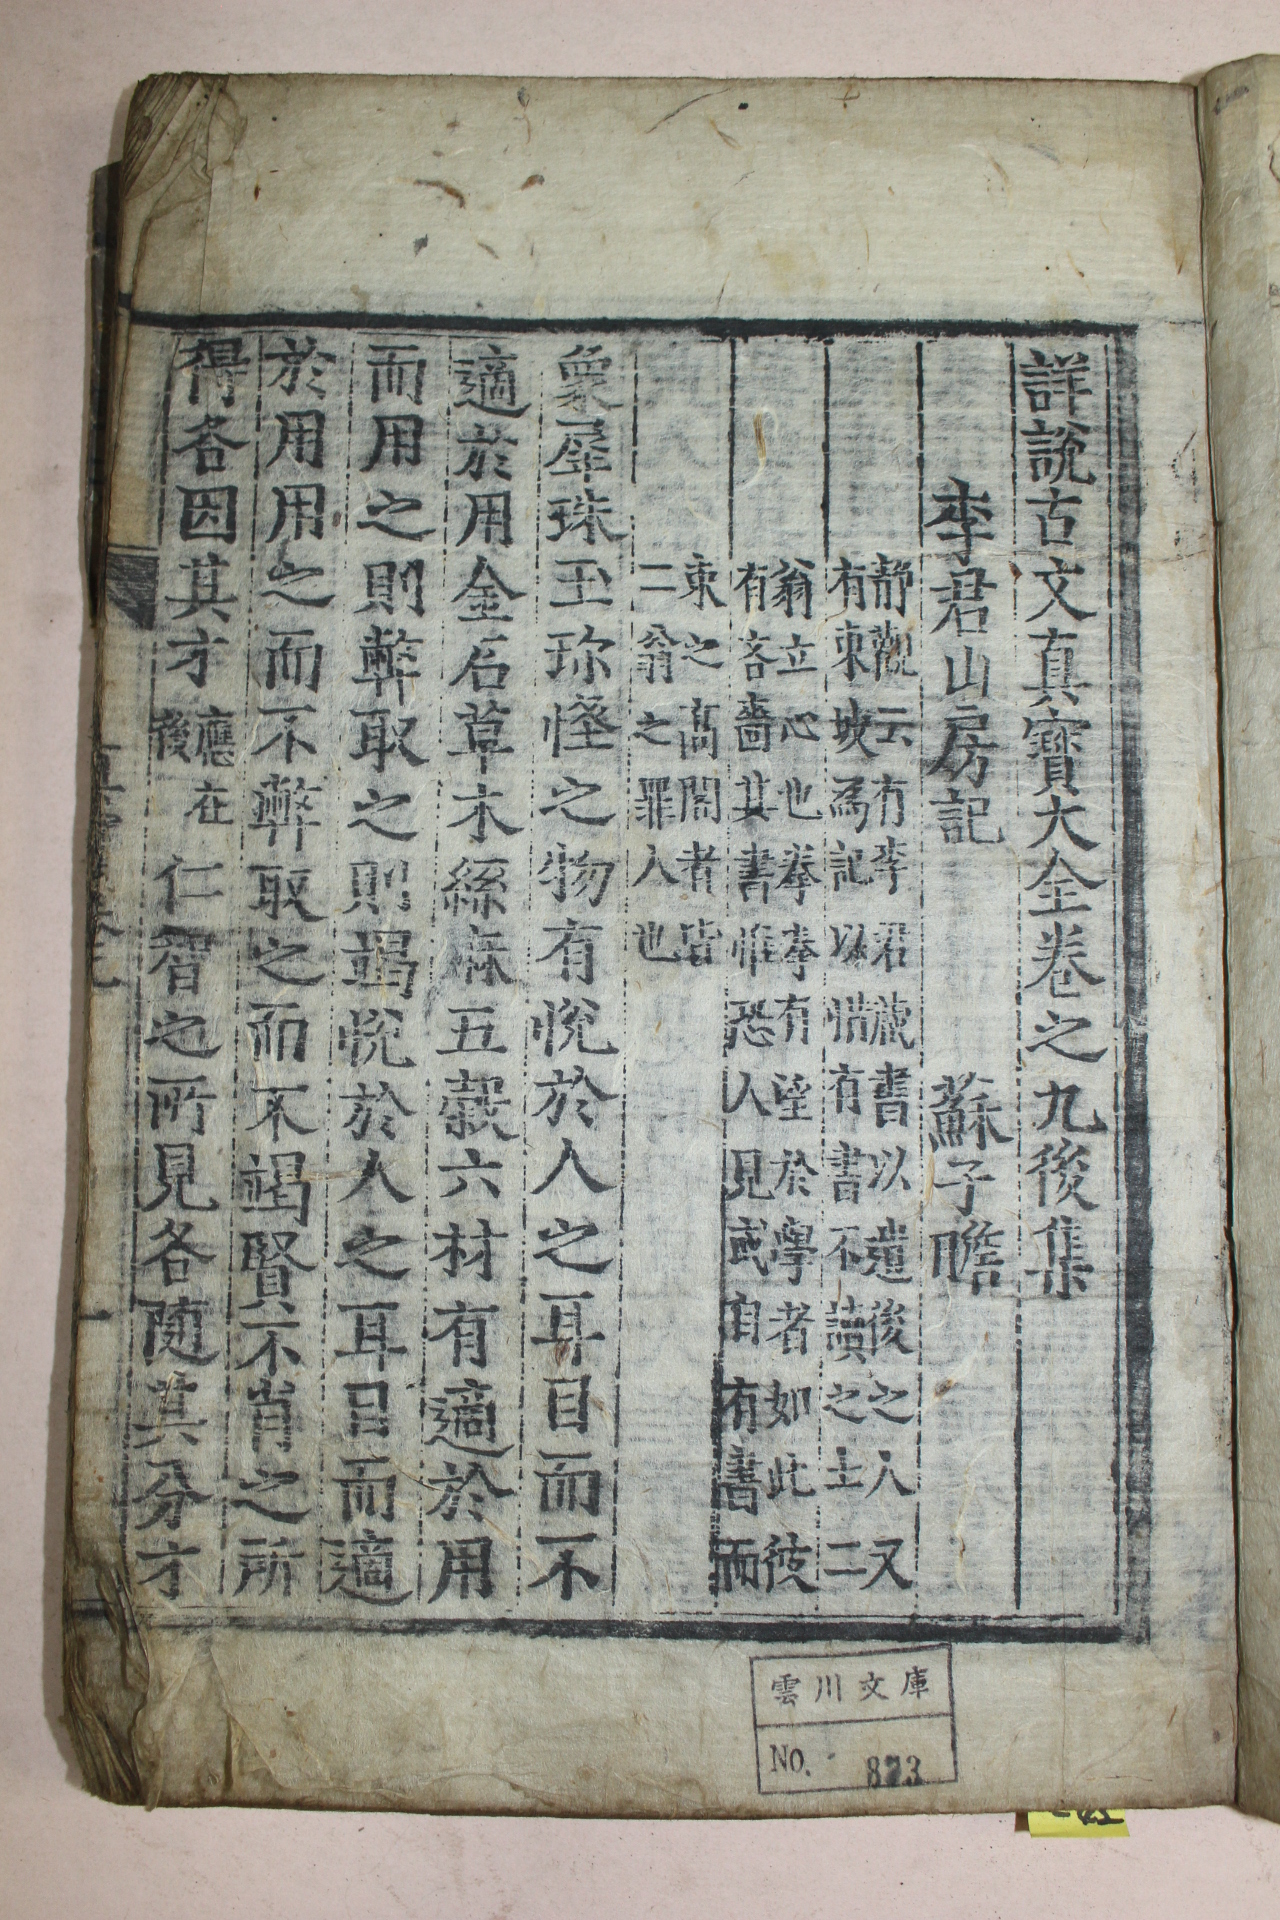 詳說古文真寶大全卷之九後集
李君山房記　蘇子瞻
靜觀云有李君藏書以遺後之人又
有東坡爲記以惜有書不讀之士二
翁立心也拳拳有望於學者如此彼
有吝嗇其書惟恐人見或自有書而
束之高閣者皆
二翁之罪人也
象犀珠玉珎怪之物有悅於人之耳目而不
適於用金石草木絲麻五穀六材有適於用
而用之則弊取之則竭悅於人之耳目而適
於用用之而不弊取之而不竭賢不肖之所
得各因其才應在後仁智之所見各隨其分才
一
雲川文庫
No. 873